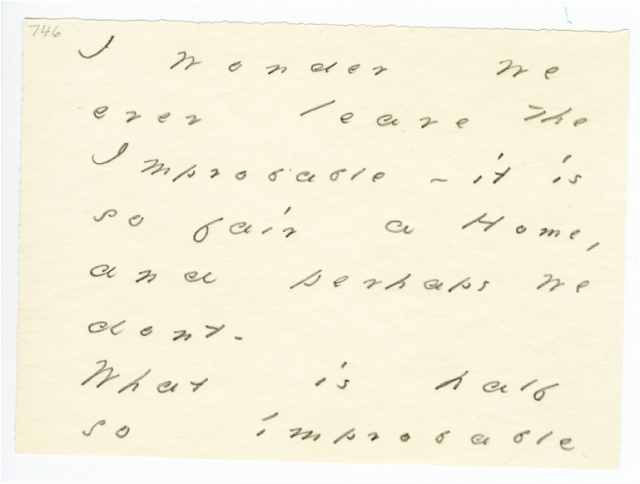 746
I wonder we
ever leave the
Improbable - it is
so fair a Home,
and perhaps we
dont -
What is half
so improbable